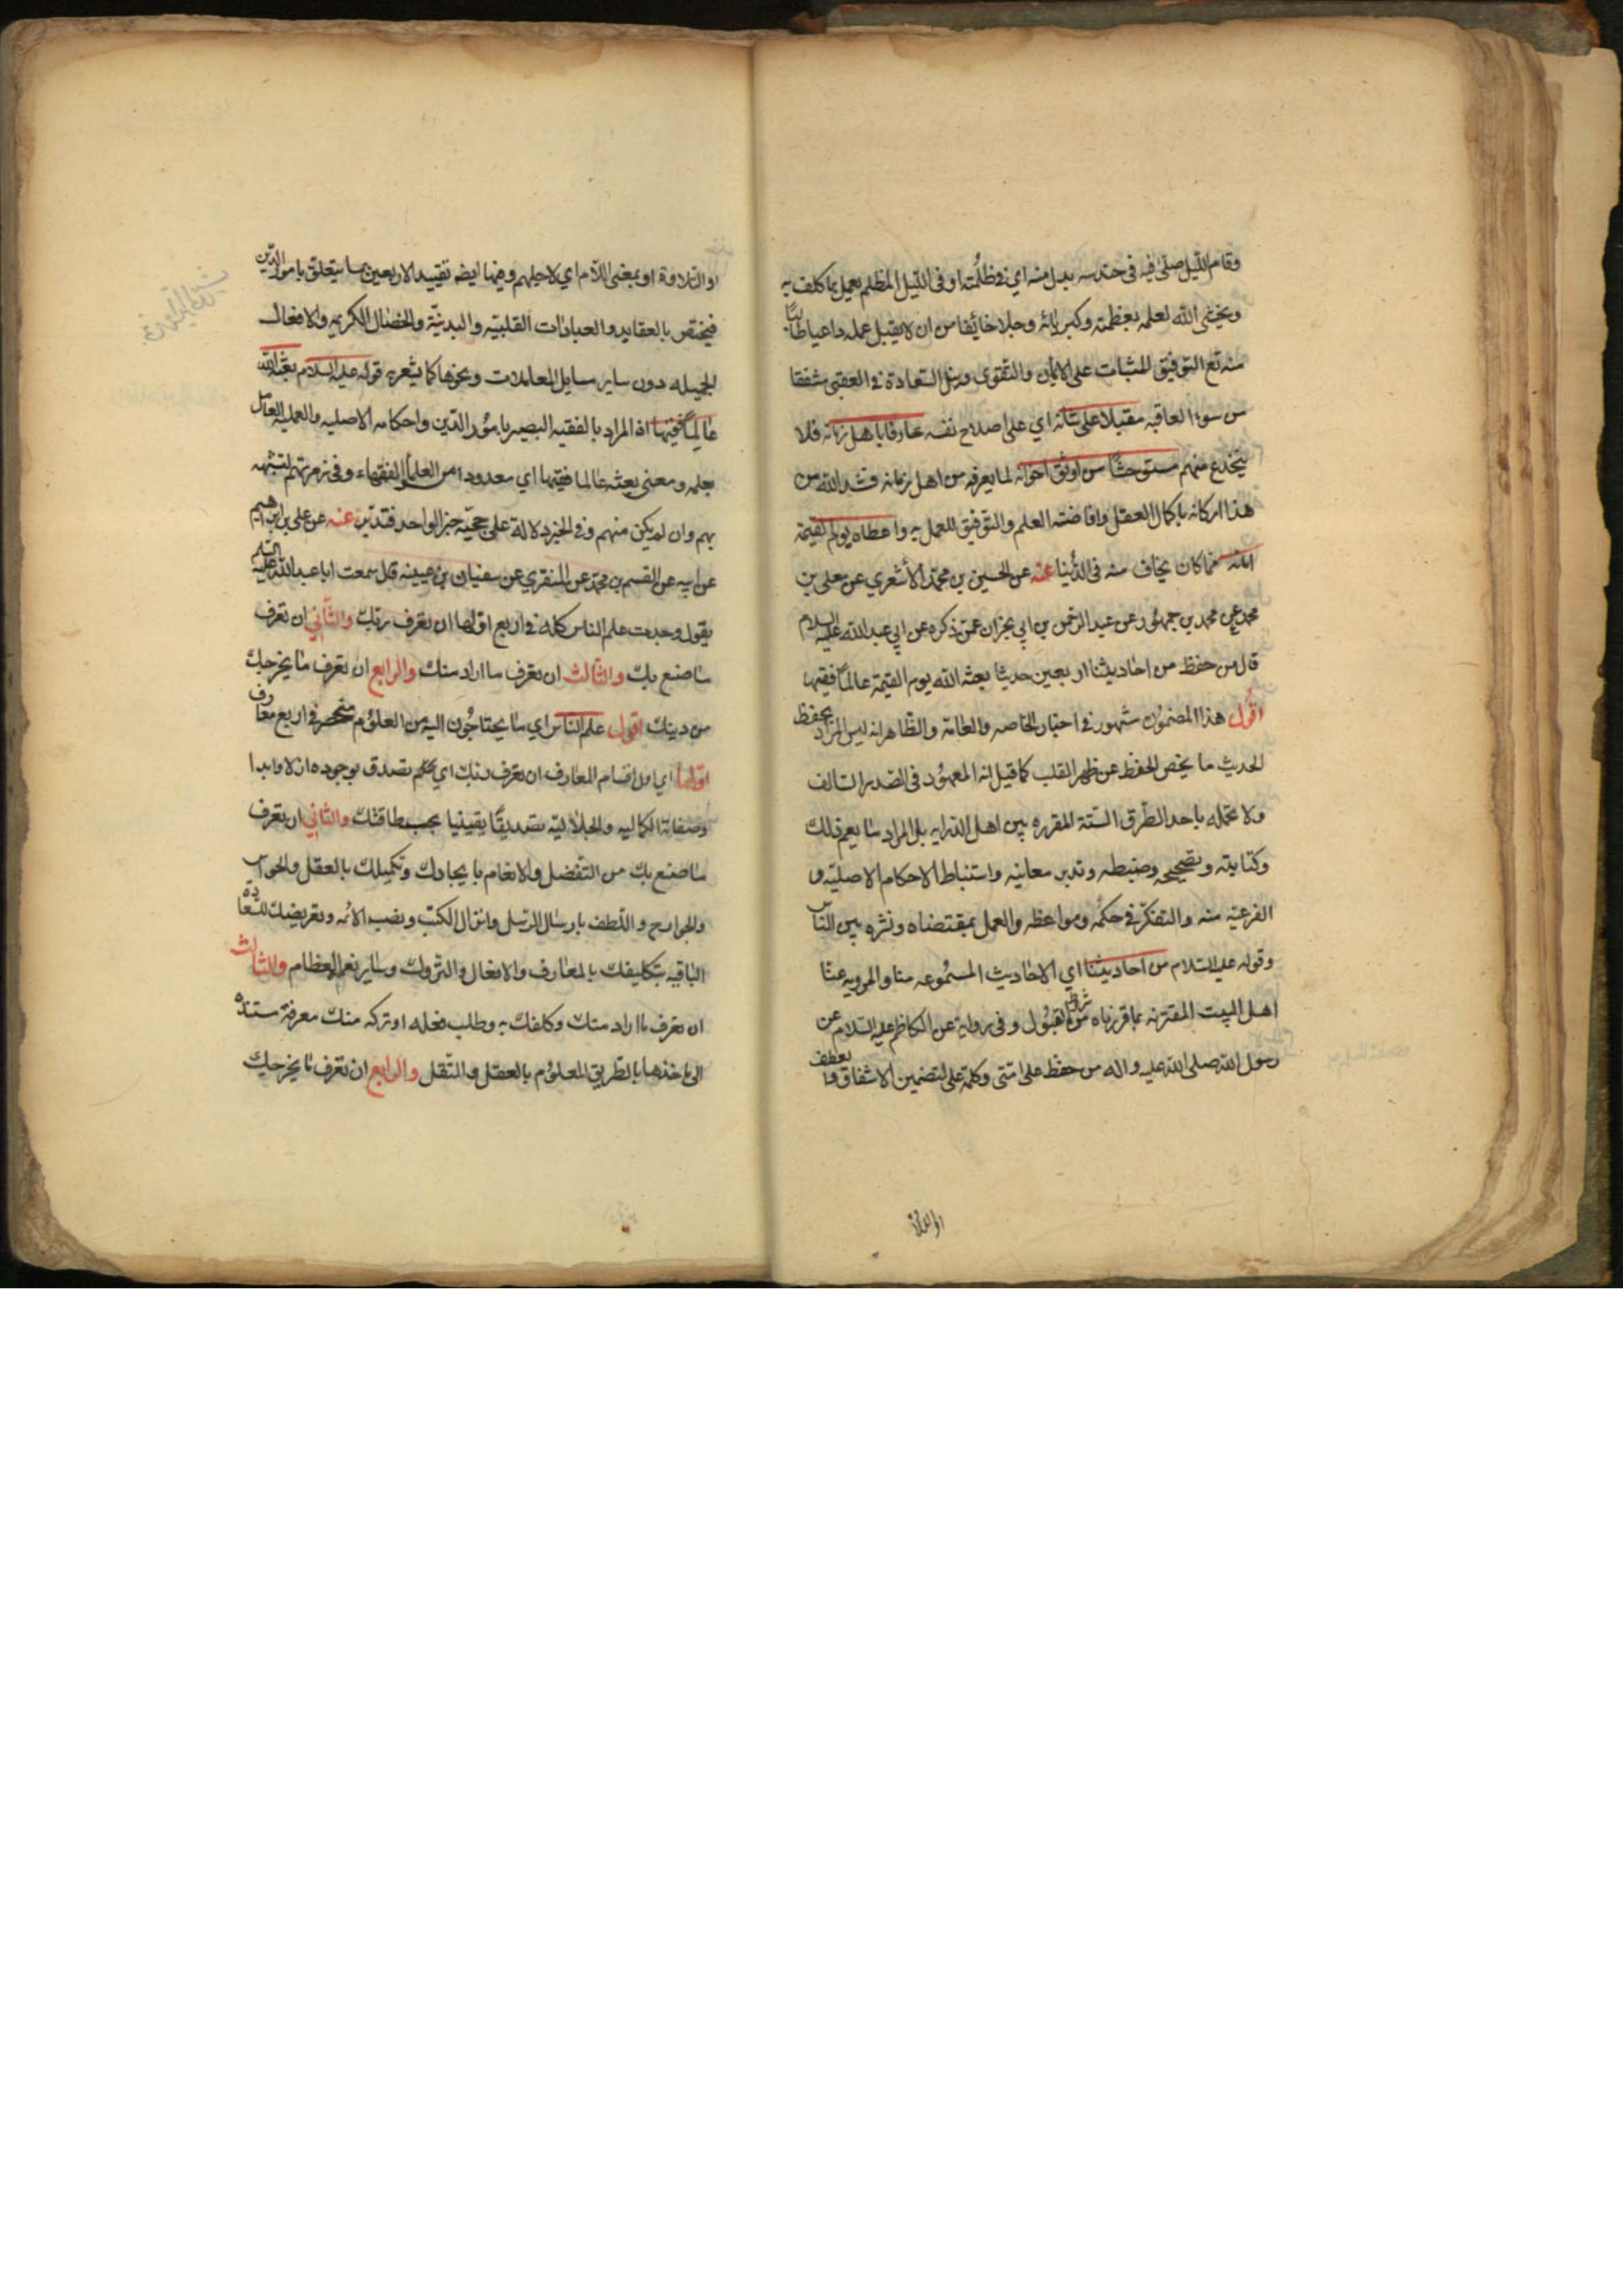 وقام الليل صلى فيه في حندسه بدل منه اي في ظلمته او في الليل المظلم يعمل بما كلف به
ويخشى الله لعلمه بعظمته وكبريائه وجلا خائفا من ان لا يقبل عمله داعيا طالبا
منه تع التوفيق للثبات على الايمان والتقوى ونيل السعادة في العقبى مشفقا
من سوء العاقبه مقبلا على شانه اي على اصلاح نفسه عارفا باهل زمانه فلا
ينخدع منهم مستوحشا من اوثق اخوانه لما يعرفه من اهل زمانه فشد الله من
هذا اركانه باكمال العقل وافاضته العلم والتوفيق للعمل به واعطاه يوم القيمة
امانه مما كان يخاف منه في الدنيا عنه عن الحسين بن محمد الأشعري عن معلى بن
محمد عن محمد بن جمهور عن عبد الرحمن بن ابي نجران عمن ذكره عن ابي عبد الله عليه السلام
قال من حفظ من احاديثنا اربعين حديثا بعثه الله يوم القيمة عالما فقيها
اقول هذا المضمون مشهور في اخبار الخاصه والعامة والظاهر انه ليس المراد بحفظ
الحديث ما يخص الحفظ عن ظهر القلب كما قيل انه المعهود في الصدر السالف
ولا تحمله باحد الطرق الستة المقرره بين اهل الدرايه بل المراد ما يعم ذلك
وكتابته وتصحيحه وضبطه وتدبر معانيه واستنباط الاحكام الاصلية و
الفرعية منه والتفكر في حكمه ومواعظه والعمل بمقتضاه ونشره بين الناس
وقوله عليه السلام من احاديثنا اي الاحاديث المسموعه منا والمرويه عنا
اهل البيت المقترنه بما قررناه من شروط القبول وفي رواية عن الكاظم عليه السلام عن
رسول الله صلى الله عليه واله من حفظ على امتى وكلمة على لتضمين الاشفاق والتعطف
او التلاوة
او التلاوة او بمعنى اللام اي لاجلهم وفيها ايضه تقييد الاربعين بما يتعلق بامور الدين
فيختص بالعقايد والعبادات القلبية والبدنية والخصال الكريمه والافعال
الجميله دون ساير مسايل المعاملات ونحوها كما يشعر به قوله عليه السلام بعثه الله
عالما فقيها اذ المراد بالفقيه البصير بامور الدين واحكامه الاصليه والعمليه العامل
بعلمه ومعنى بعثه عالما فقيها اي معدودا من العلماء الفقهاء وفي زمرتهم لتشبهه
بهم وان لم يكن منهم وفي الخبر دلالة على حجية خبر الواحد فتدبر عنه عن علي بن ابرهيم
عن ابيه عن القسم بن محمد عن المنقري عن سفيان بن عيينه قال سمعت ابا عبد الله عليه السلم
يقول وجدت علم الناس كله في اربع اولها ان تعرف ربك والثاني ان تعرف
ما صنع بك والثالث ان تعرف ما اراد منك والرابع ان تعرف ما يخرجك
من دينك اقول علم الناس اي ما يحتاجون اليه من العلوم منحصر في اربع معارف
اولها اي اول اقسام المعارف ان تعرف ربك اي تصدق بوجوده ازلا وابدا
وصفاته الكماليه والجلاليه تصديقا يقينيا بحسب طاقتك والثاني ان تعرف
ما صنع بك من التفضل والانعام بايجادك وتكميلك بالعقل والحواس
والجوارح واللطف بارسال الرسل وانزال الكتب ونصب الائمه وتعريضك للسعادة
الباقيه بتكليفك بالمعارف والافعال والتروك وساير نعمه العظام والثالث
ان تعرف ما اراد منك وكلفك به وطلب فعله او تركه منك معرفة مستندة
الى اخذها بالطريق المعلوم بالعقل والنقل والرابع ان تعرف ما يخرجك